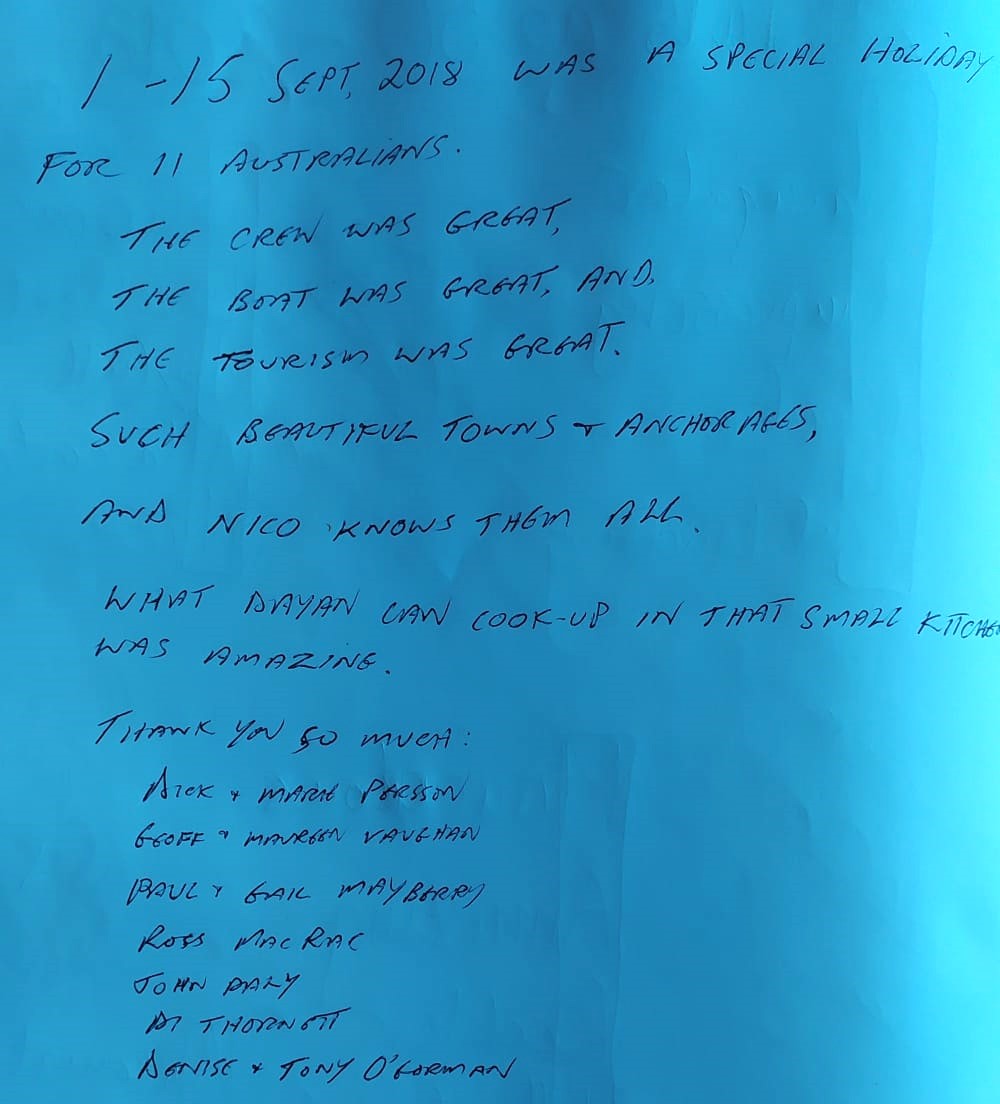 1 - 15 SEPT, 2018 WAS A SPECIAL HOLIDAY
FOR 11 AUSTRALIANS.
THE CREW WAS GREAT,
THE BOAT WAS GREAT, AND,
THE TOURISM WAS GREAT.
SUCH BEAUTIFUL TOWNS + ANCHORAGES,
AND NICO KNOWS THEM ALL.
WHAT DAYAN CAN COOK-UP IN THAT SMALL KITCHEN
WAS AMAZING.
THANK YOU SO MUCH:
DICK + MARIE PERSSON
GEOFF + MAUREEN VAUGHAN
PAUL + GAIL MAYBERRY
ROSS MACRAE
JOHN DALY
DI THORNETT
DENISE + TONY O'GORMAN